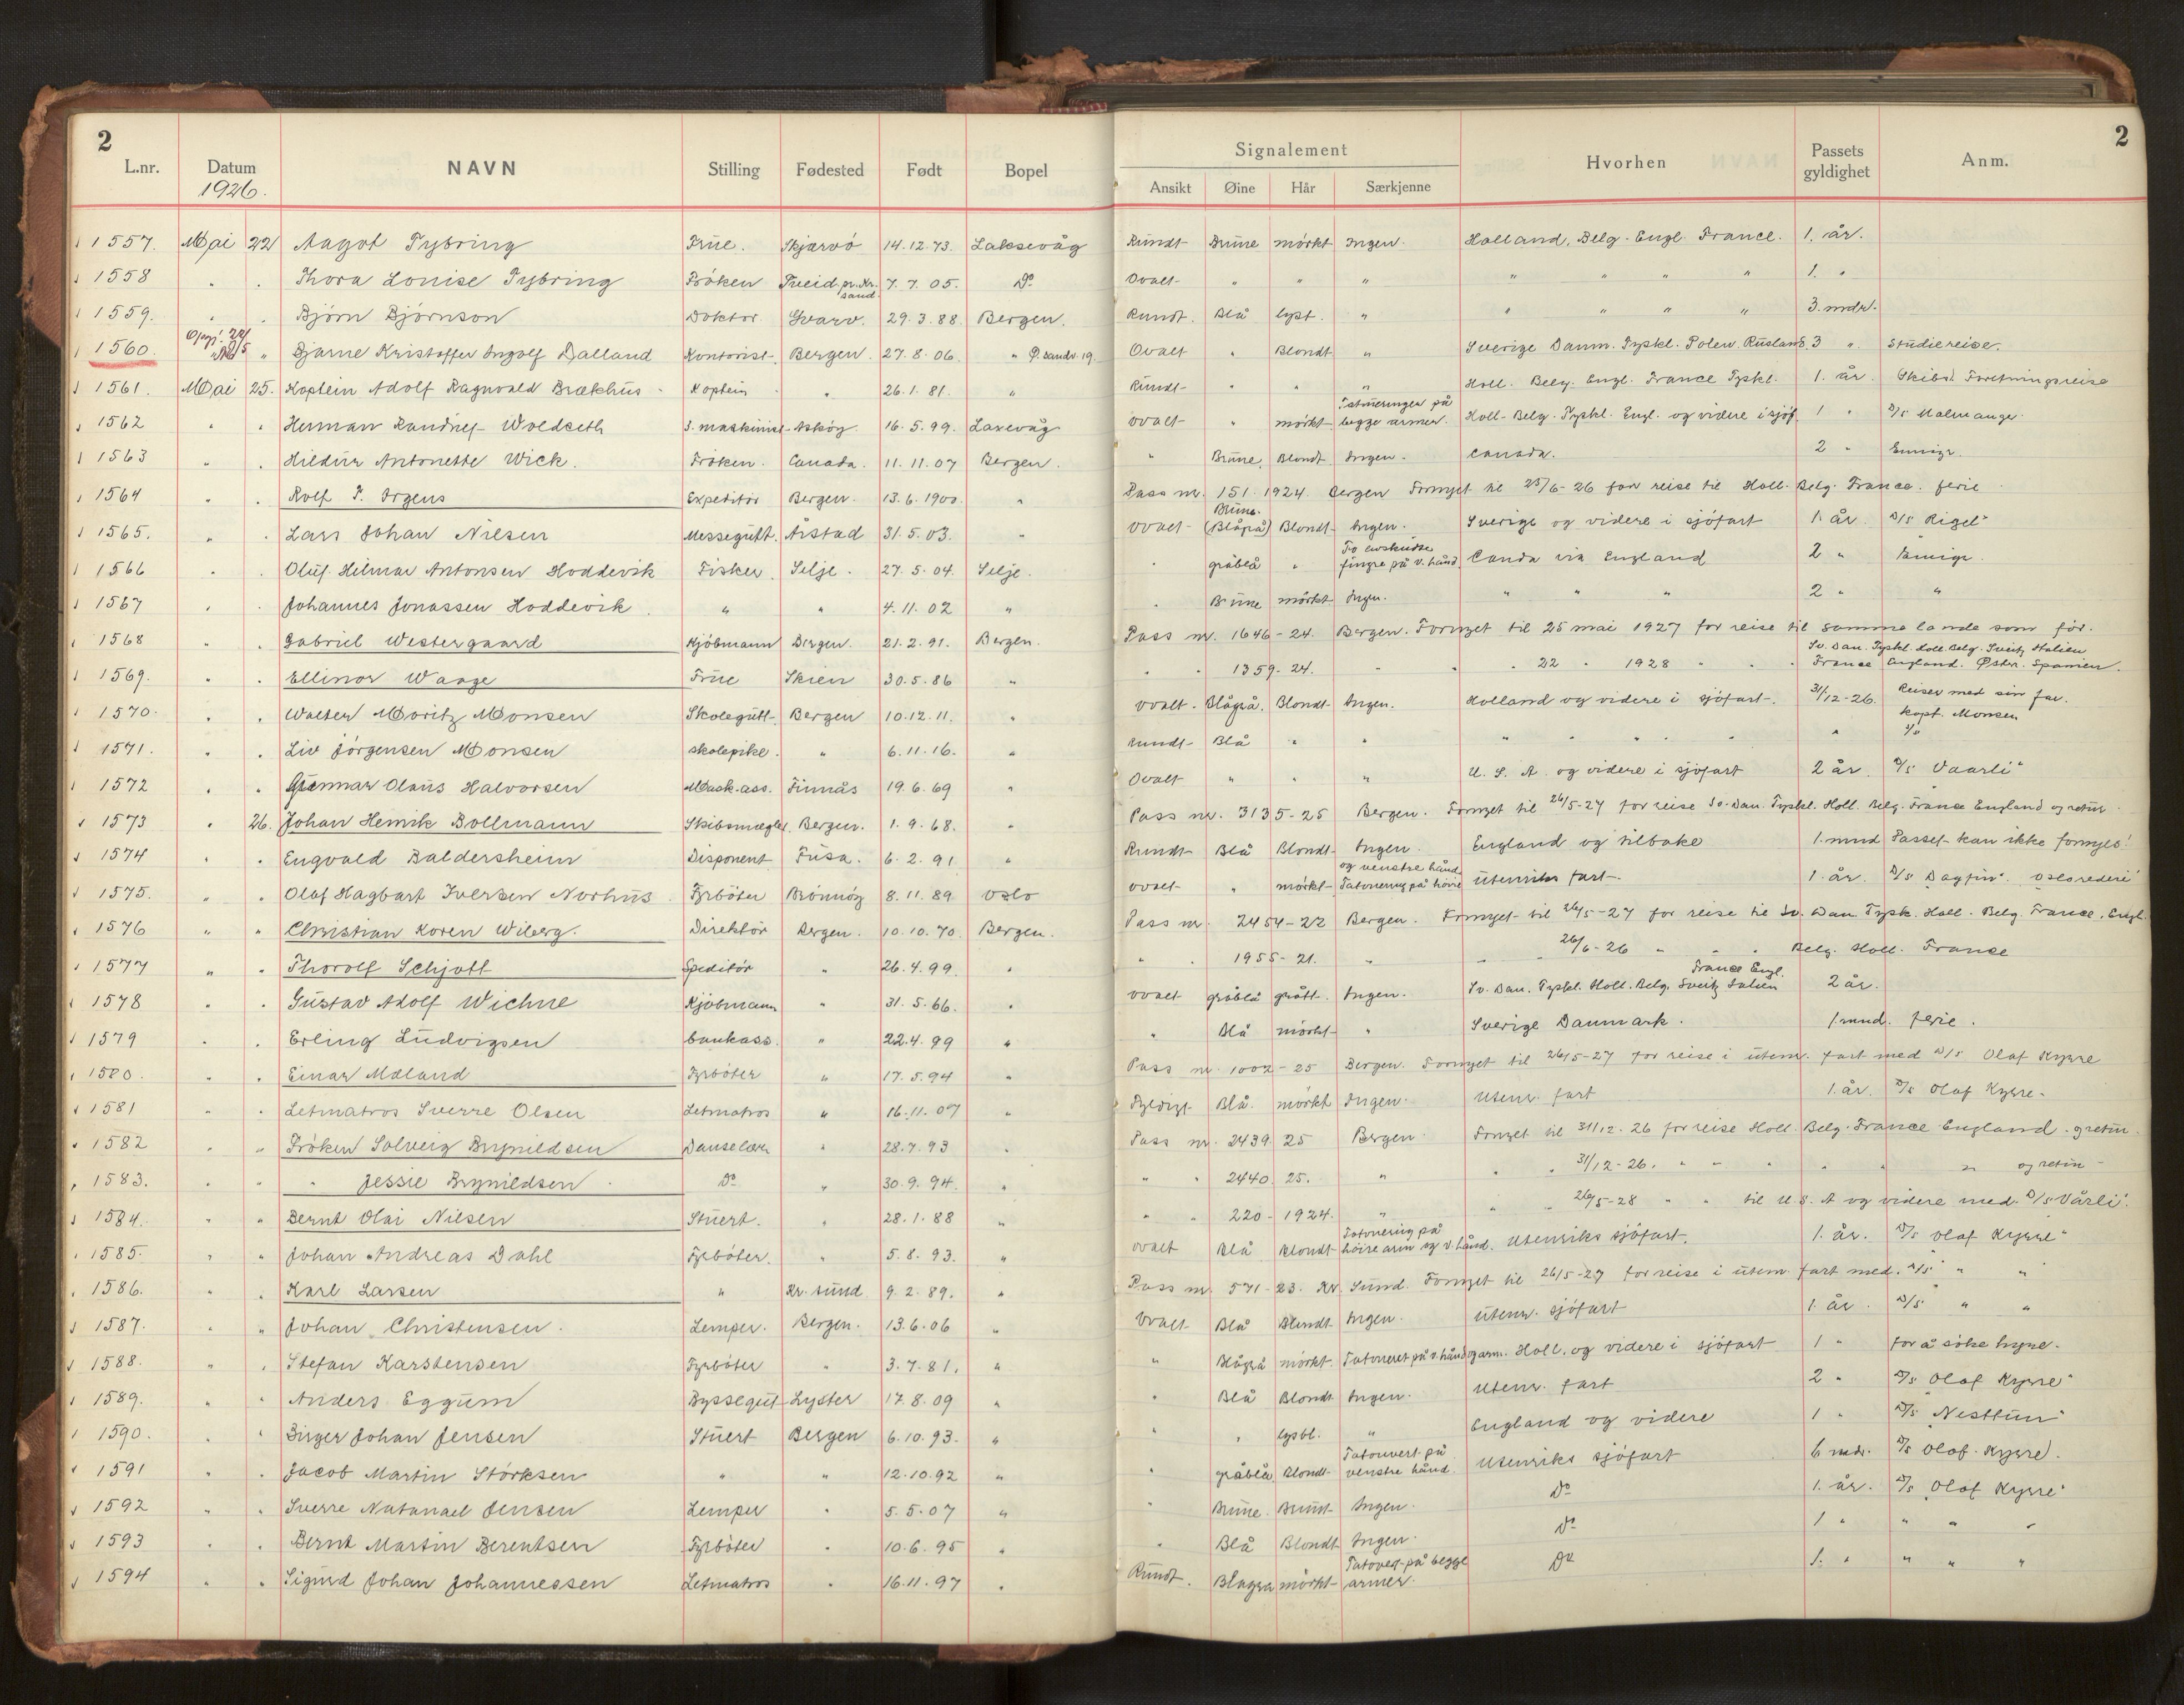 2
L.nr. Datum NAVN Stilling Fødested Født Bopel
1926.
2
Signalement Hvorhen Passets gyldighet Anm.
Ansikt Øine Hår Særkjenne
1557. Mai 22 Aagot Tybring Frue. Skjærvö 14.12.73. Laksevåg Rundt Brune mörkt Ingen. Holland, Belg. Engl. France. 1. år.
1558 " . Thora Louise Tybring Fröken Treid pr. Kr.sand. 7.7.05. Do Ovalt " " " " " " " 1. "
1559. " . Björn Björnson Doktor Svarv. 29.3.88. Bergen. Rundt. Blå lyst. " " " " " 3. mdr.
1560. " Bjarne Kristoffer Ingolf Dalland Kontorist. Bergen. 27.8.06. " Ø. sandv. 19. Ovalt " Blondt " Sverige Danm. Tyskl. Polen. Rusland. 3 " Studiereise.
1561. Mai 25. Kaptein Adolf Ragnvald Brækhus Kaptein " 26.1.81. " Rundt " " " Holl. Belg. Engl. France Tyskl. 1. år. Skibs. Foretningsreise
1562 " " Herman Randulf Woldseth 3. maskinist Askög. 16.5.99. Laxevåg ovalt " mörkt Tatoveringer på begge armer. Holl. Belg. Tyskl. Engl. og videre i sjöf. 1 " D/S Malmanger.
1563 " . Hildur Antonette Wick. Fröken. Canada. 11.11.07 Bergen. " Brune. Blondt Ingen. Canada. 2 " Emigr.
1564 " . Rolf T. Irgens Expeditör Bergen. 13.6.1900. " Pass nr. 151. 1924. Bergen Fornyet til 25/6-26 for reise til Holl. Belg. France. ferie
1565. " . Lars Johan Nilsen Messegutt. Årstad 31.5.03. " ovalt Brune. (Blågrå) Blondt Ingen. Sverige og videre i sjöfart 1. år. D/S Rigel"
1566 . . Oluf Hilmar Antonsen Hoddevik Fisker. Selje. 27.5.04. Selje. " gråblå " To fingre på v. hånd. Canda via England 2 " Emigr.
1567 . . Johannes Jonassen Hoddevik " " 4.11.02 " . Brune mörkt Ingen. " " " 2 " "
1568 " . Gabriel Westergaard Kjöbmann Bergen. 21.2.91. Bergen. Pass nr. 1646-24. Bergen. Fornyet til 25 mai 1927 for reise til samme lande som för.
1569. . . Ellinor Waage Frue Skien 30.5.86 " . " 1359-24. " " " 22 " 1928 " " Sv. Dan. Tyskl. Holl. Belg. Sveitz Italien France England. Østr. Spanien.
1570. . . Walter Moritz Monsen Skolegutt. Bergen 10.12.11. " ovalt. Blågrå. Blondt Ingen. Holland og videre i sjöfart. 31/12-26. Reiser med sin far. kapt. Monsen
1571. . . Liv Jörgensen Monsen skolepike. " 6.11.16. " rundt Blå " " " " " " " "
1572 . . Gunnar Olaus Halvorsen Mask.ass. Finnås 19.6.69 " Ovalt " " " U. S. A. og videre i sjöfart 2 år. D/S Vaarli"
1573 . 26. Johan Henrik Bollmann Skibsmægler. Bergen. 1.9.68. " Pass nr. 3135-25 Bergen. Fornyet til 26/5-27 for reise Sv. Dan. Tyskl. Holl. Belg. France England og retur
1574 . . Engvald Baldersheim Disponent Fusa. 6.2.91 " Rundt Blå Blondt Ingen. England og tilbake 1. mnd Passet kan ikke fornyes!
1575. " . Olaf Hagbart Iversen Norhus. Fyrböter Brönnöy 8.11.89 Oslo ovalt " mörkt Tatovering på höire og venstre hånd utenriks fart. 1. år. D/S Dagfin". Oslorederi
1576 " " Christian Koren Wiberg. Direktör Bergen. 10.10.70. Bergen. Pass nr. 2454-22 Bergen. Fornyet til 26/5-27 for reise til Sv. Dan. Tysk. Holl. Belg. France. Engl.
1577 " . Thorolf Schjött Speditör " 26.4.99. " " . 1955-21. " " " 26/6-26 " " " Belg. Holl. France
1578 " . Gustav Adolf Wichne Kjöbmann " 31.5.66. " ovalt gråblå grått. Ingen. Sv. Dan. Tyskl. Holl. Belg. Sveitz Italien France Engl. 2 år.
1579 . . Erling Ludvigsen bankass. " 22.4.99 " " Blå mörkt " Sverige Danmark. 1. mnd. ferie.
1580. " . Einar Mæland Fyrböter " 17.5.94 " Pass nr. 1002-25 Bergen. Fornyet til 26/5-27 for reise i utenr. fart med D/S Olaf Kyrre
1581 " . Letmatros Sverre Olsen Letmatros " 16.11.07 " Fyldigt Blå. mörkt Ingen. Utenr. fart 1. år. D/S Olaf Kyrre.
1582 . " Fröken Solveig Brynildsen Danselær. " 28.7.93 . Pass nr. 2439 25 Bergen. Fornyet til 31/12-26 for reise Holl. Belg. France England. og retur.
1583. . " " Jessie Brynildsen. Do " 30.9.94. " " " 2440. 25. " " " 31/12-26. " " " " " " og retur
1584. " " Bernt Olai Nilsen Stuert. . 28.1.88 " " " 220-1924. " " " 26/5-28 " " til U.S.A og videre med D/S Vårli".
1585. " " Johan Andreas Dahl Fyrböter. . 5.8.93. " ovalt Blå Blondt Tatovering på höire arm og v. hånd. Utenriks sjöfart. 1. år. D/S Olaf Kyrre"
1586. " . Karl Larsen " Kr. sund 9.2.89. " Pass nr. 571-23. Kr. Sund. Fornyet til 26/5-27 for reise i utenr. fart med. D/S " "
1587. " " Johan Christensen. Lemper. Bergen. 13.6.06 " Ovalt Blå Blondt Ingen. Utenr. sjöfart 1. år. D/S " "
1588. " . Stefan Karstensen Fyrböter " 3.7.81. " " Blågrå mörkt. Tatoveret på v. hånd og arm. Holl. og videre i sjöfart 1 " for å söke hyre.
1589. " " Anders Eggum Byssegut Lyster 17.8.09 " " Blå Blondt Ingen. Utenr. fart 2 " D/S Olaf Kyrre"
1590. . " Birger Johan Jensen Stuert Bergen 6.10.93. " " " lysbl. " England og videre 1 " D/S Nesttun"
1591 . . Jacob Martin Störksen " " 12.10.92 " " gråblå Blondt Tatouvert på venstre hånd. Utenriks sjöfart 6 mdr. D/S Olaf Kyrre.
1592 " . Sverre Natanael Jensen Lemper " 5.5.07 " " Brune. Brunt Ingen. Do 1. år. D/S Olaf Kyrre"
1593 . . Bernt Martin Berentsen Fyrböter " 10.6.95 " " Blå Blondt Ingen. Do 1 " " " "
1594 . . Sigurd Johan Johannessen Letmatros . 16.11.97 " Rundt. Blagra mörkt Tatovert på begge armer. Do 1. " " " "